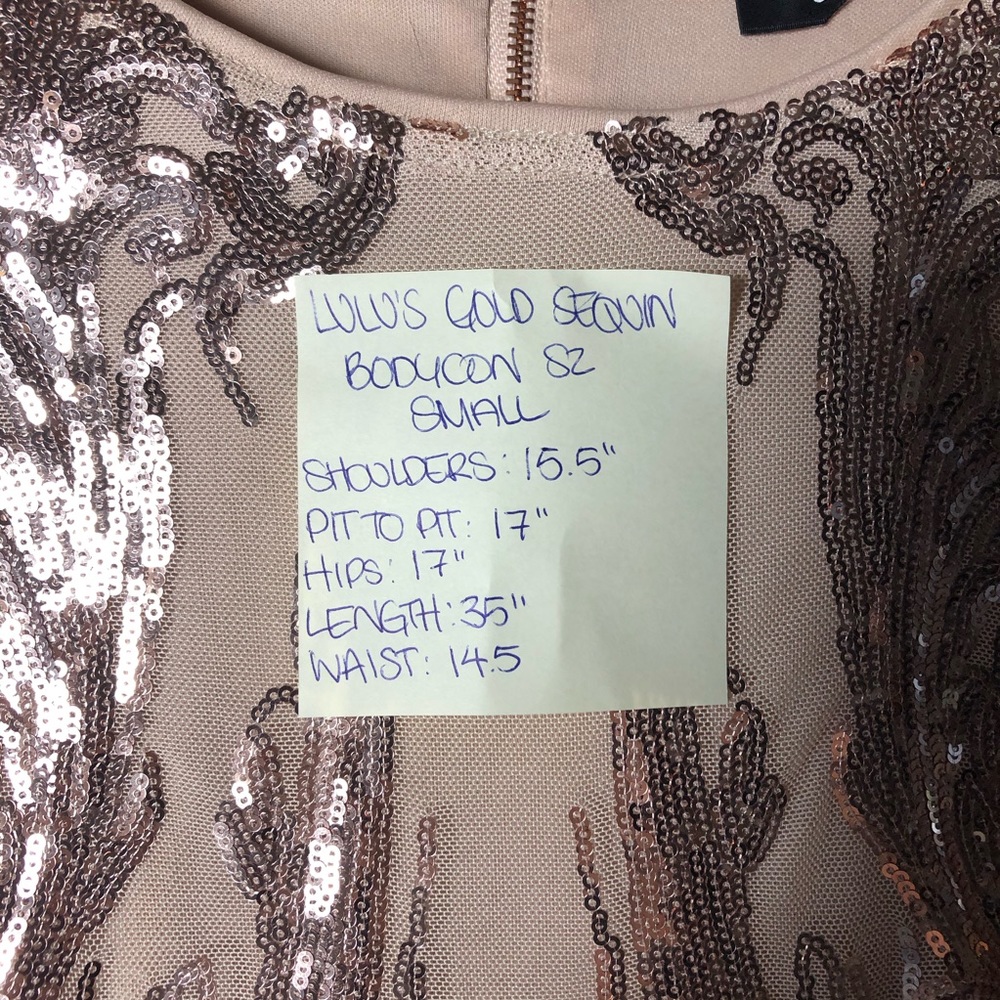 LULU'S GOLD SEQUIN
BODYCON SZ
SMALL
SHOULDERS: 15.5"
PIT TO PIT: 17"
HIPS: 17"
LENGTH: 35"
WAIST: 14.5